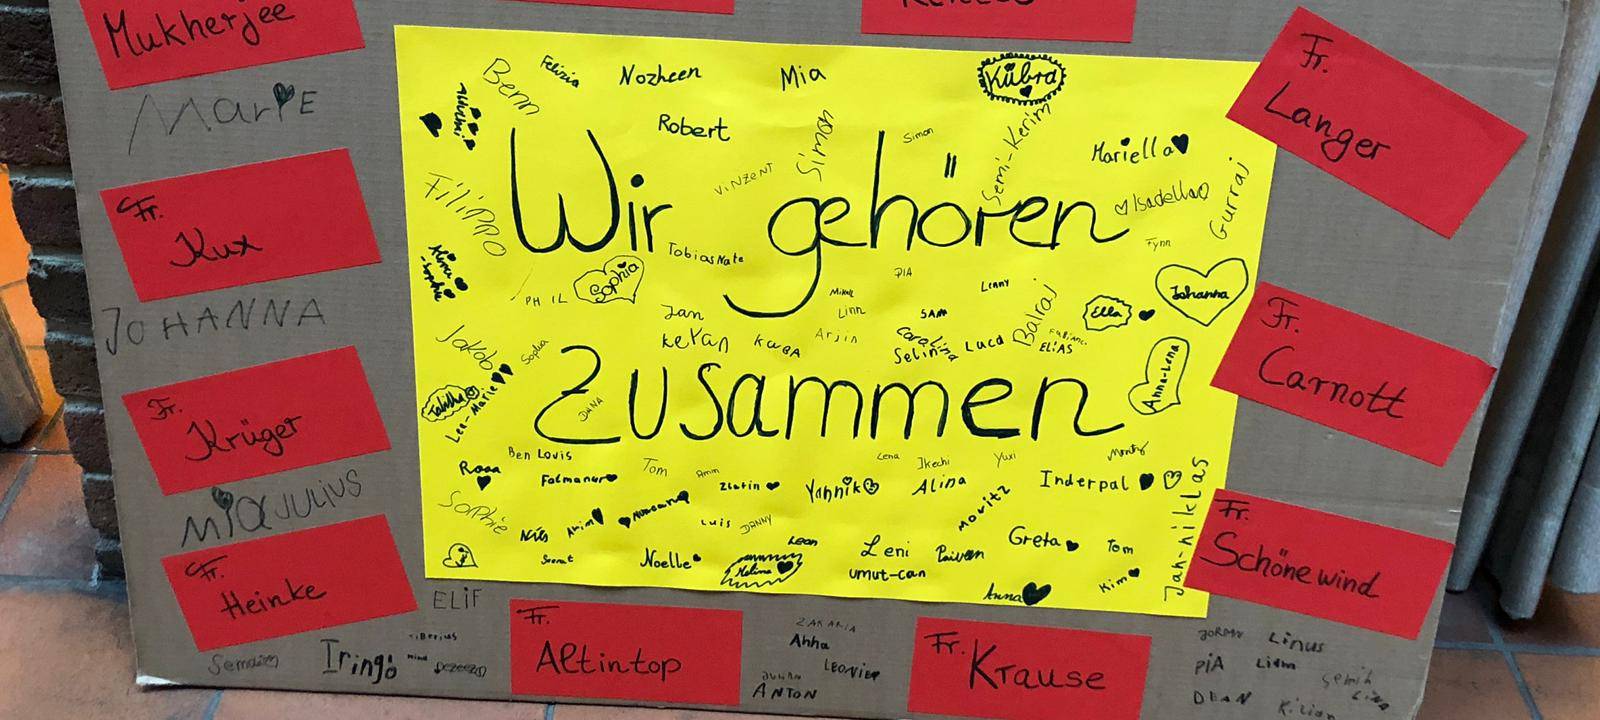 Mukherjee
Marie
Fr.
Kux
JOHANNA
Fr.
Krüger
Mia JULIUS
Fr.
Heinke
Benn
Felizia
Nozheen
Mia
Kübra
Robert
Simon
Simon
Semi-Kerim
Mariella
Filippo
VINZENT
Isabella
Gurraj
Wir gehören
Tobias Nate
Fynn
PHIL
Sophia
PIA
Lenny
Johanna
Jan
Linn
SAM
Balraj
Ella
Jakob
Sophia
Ketan
KUBA
Arjin
Carolina
Selina
Luca
ELiAS
Anna-Lena
Lea-Marie
DANA
Zusammen
Ben Lovis
Tom
Lena
Ikechi
Yuxi
Fatmanur
Zlatin
Yannik
Alina
Inderpal
Sophie
Nils
Luis
DANNY
Moritz
Jan-niklas
Leon
Noelle
Melina
Leni
Greta
Tom
umut-can
Kim
Anna
Fr.
Langer
Fr.
Carnott
Fr.
Schönewind
ELiF
Iringó
Fr.
Altintop
ZAKARIA
Anna
ANTON
Fr. Krause
Linus
PiA
Liam
DEAN
Kilian